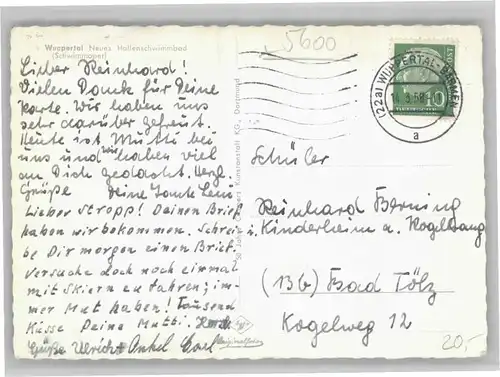 5600
Wuppertal Neues Hallenschwimmbad
(Schwimmoper)
Lieber Reinhard!
Vielen Dank für Deine
Karte. Wir haben uns
sehr darüber gefreut.
Heute ist Mutti bei
uns und wir haben viel
an Dich gedacht. Herzl.
Grüße Deine Tante Leni
Lieber Stropp! Deinen Brief
haben wir bekommen. Schrei-
be Dir morgen einen Brief.
Versuche doch noch einmal
mit Skiern zu fahren; im-
mer Mut haben! Tausend
Küsse Deine Mutti. Herzl.
Grüße Ulrich + Onkel Carl
(22a) WUPPERTAL-BARMEN
a
10
Schüler
Reinhard Berning
i. Kinderheim a. Kogelhang
(13b) Bad Tölz
Kogelweg 12
20,-